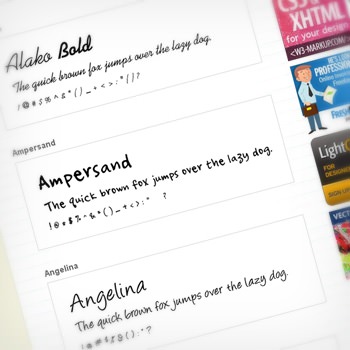 Alako Bold
The quick brown fox jumps over the lazy dog.
Ampersand
Ampersand
The quick brown fox jumps over the lazy dog.
! @ # $ % ^ & * ( ) _ + < > : " ?
Angelina
Angelina
The quick brown fox jumps over the lazy dog.
XHTML
for your design
<W3-MARKUP.COM/>
PROFESSION
Light
FOR
DESIGNER
SIGN UP
VECT